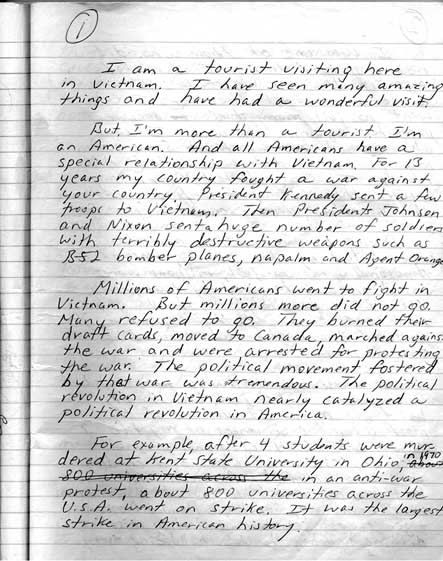 1
I am a tourist visiting here
in Vietnam. I have seen many amazing
things and have had a wonderful visit.
But, I'm more than a tourist I'm
an American. And all Americans have a
special relationship with Vietnam. For 13
years my country fought a war against
your country. President Kennedy sent a few
troops to Vietnam. Then Presidents Johnson
and Nixon sent a huge number of soldiers
with terribly destructive weapons such as
B-52 bomber planes, napalm and Agent Orange
Millions of Americans went to fight in
Vietnam. But millions more did not go.
Many refused to go. They burned their
draft cards, moved to Canada, marched against
the war and were arrested for protesting
the war. The political movement fostered
by that war was tremendous. The political
revolution in Vietnam nearly catalyzed a
political revolution in America.
For example, after 4 students were mur-
dered at Kent State University in Ohio, in 1970 about
800 universities across the in an anti-war
protest, about 800 universities across the
U.S.A. went on strike. It was the largest
strike in American history.